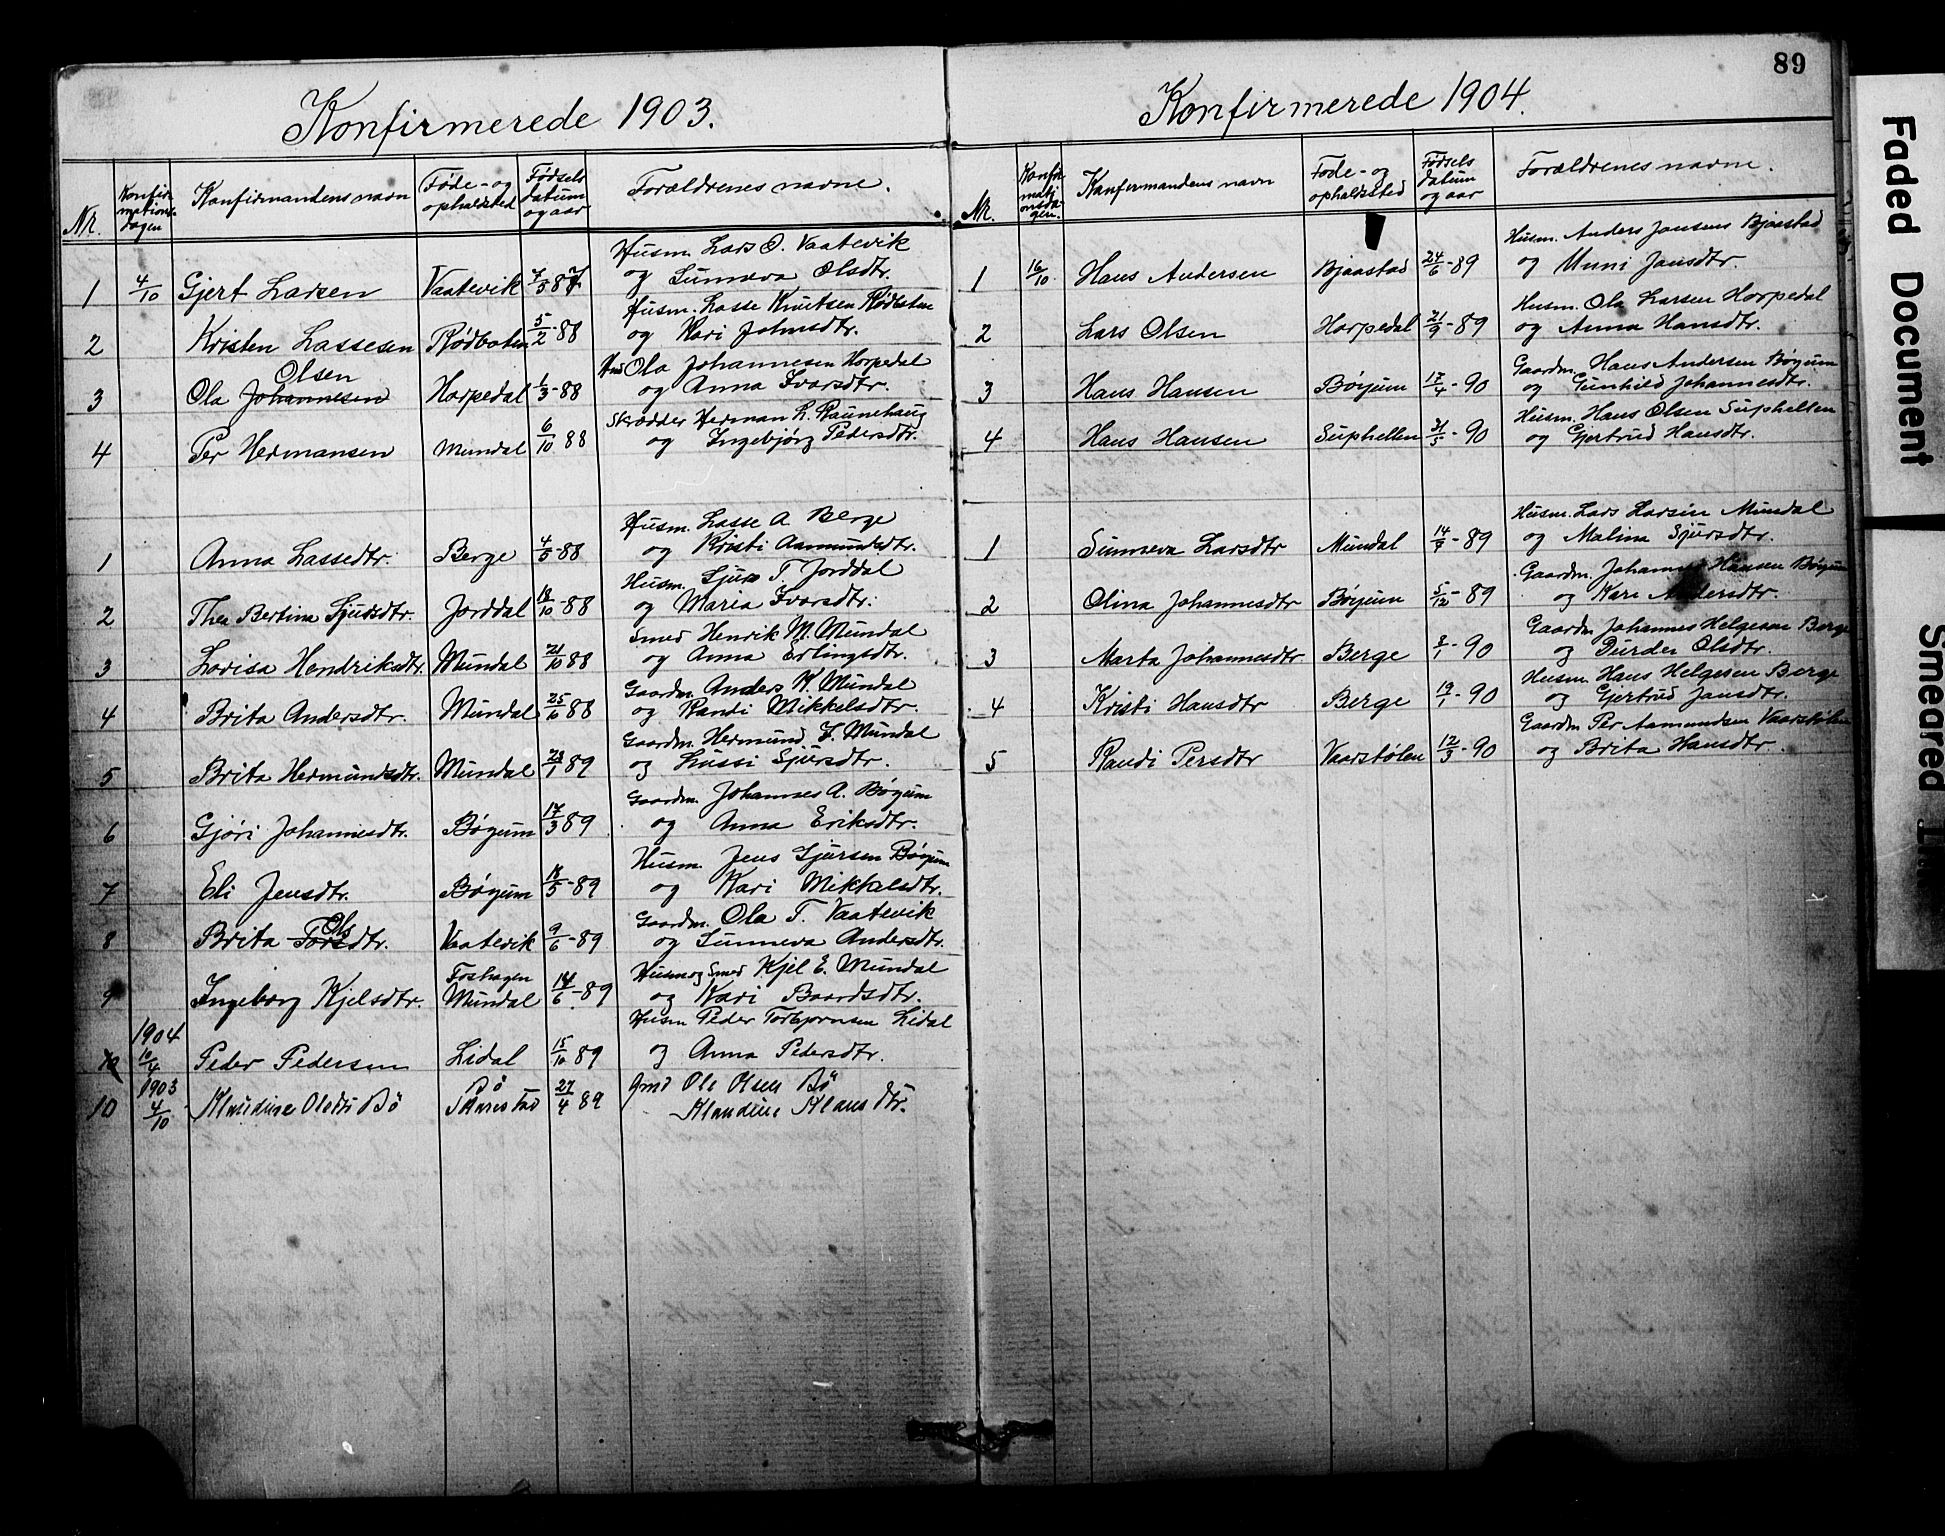 89
Konfirmerede 1903.
Nr. Konfirmationsdagen Konfirmandens navn Føde- og opholdsted Fødsels datum og aar Forældrenes navne.
Husm. Lars O. Vaatevik
1 4/10 Gjert Larsen Vaatevik 87 og Sunneva Olsdtr.
Husm. Lasse Knutsen Rødboten
2 Kristen Lassesen Rødboten 5/2-88 og Kari Johnsdtr.
Olsen Ola Johannesen Horpedal
3 Ola Johannesen Horpedal 1/3-88 og Anna Ivarsdtr.
Skrædder Herman L. Raunehaug
4 Per Hermansen Mundal 6/10 88 og Ingebjørg Pedersdtr.
Husm. Lasse A Berge
1 Anna Lassedtr. Berge 4/5-88 og Kristi Aamundsdtr.
Husm. Sjur T. Jorddal
2 Thea Bertina Sjursdtr. Jorddal 18/10-88 og Maria Ivarsdtr.
Smed Henrik M. Mundal
3 Lovisa Hendriksdtr. Mundal 21/10 88 og Anna Erlingsdtr.
Gaardm. Anders K. Mundal
4 Brita Andersdtr. Mundal 88 og Randi Mikkelsdtr.
Gaardm. Hermund J. Mundal
5 Brita Hermundsdtr. Mundal 89 og Lussi Sjursdtr.
Gaardm. Johannes A. Bøyum
6 Gjøri Johannesdtr. Bøyum 17/3 89 og Anna Eriksdtr.
Husm. Jens Sjursen Bøyum
7 Eli Jensdtr. Bøyum 18/5-89 og Kari Mikkelsdtr.
Ols Gaardm. Ola T. Vaatevik
8 Brita Torsdtr. Vaatevik 9/6-89 og Sunneva Andersdtr.
Foshagen Husm og Smed Kjel E. Mundal
9 Ingeborg Kjelsdtr. Mundal 14/6-89 og Kari Baardsdtr.
1904 Husm Peder Torbjørnsen Lidal
10 10/4 Peder Pedersen Lidal 15/10 89 og Anna Pedersdtr.
1903 Bø Gmd Ole Olsen Bø
10 4/10 Klaudine Olsdtr Bø 27/4 89 Klaudine Klausdtr.
Konfirmerede 1904.
Nr. Konfirmationsdagen. Konfirmandens navn Føde- og opholdsted Fødsels datum og aar Forældrenes navne.
Husm. Anders Jonsens Bjaastad
1 16/10 Hans Andersen Bjaastad 24/6-89 og Unni Jonsdtr.
Husm. Ola Larsen Horpedal
2 Lars Olsen Horpedal 21/9-89 og Anna Hansdtr.
Gaardm. Hans Andersen Bøyum
3 Hans Hansen Bøyum 17/4-90 og Gunhild Johannesdtr.
Husm. Hans Olsen Suphellen
4 Hans Hansen Suphellen 31/5-90 og Gjertrud Hansdtr.
Husm. Lars Larsen Mundal
1 Sunneva Larsdtr Mundal 89 og Malina Sjursdtr.
Gaardm. Johannes Hansen Bøyum
2 Olina Johannesdtr Bøyum 5/12-89 og Kari Andersdtr.
Gaardm. Johannes Helgesen Berge
3 Marta Johannesdtr Berge 3/1-90 og Durdei Olsdtr.
Husm. Hans Helgesen Berge
4 Kristi Hansdtr Berge 19/1-90 og Gjertrud Jonsdtr.
Gaardm Per Aamundsen Vaarstølen
5 Randi Persdtr Vaarstølen 12/3-90 og Brita Hansdtr.
Faded Document
Smeared Ink